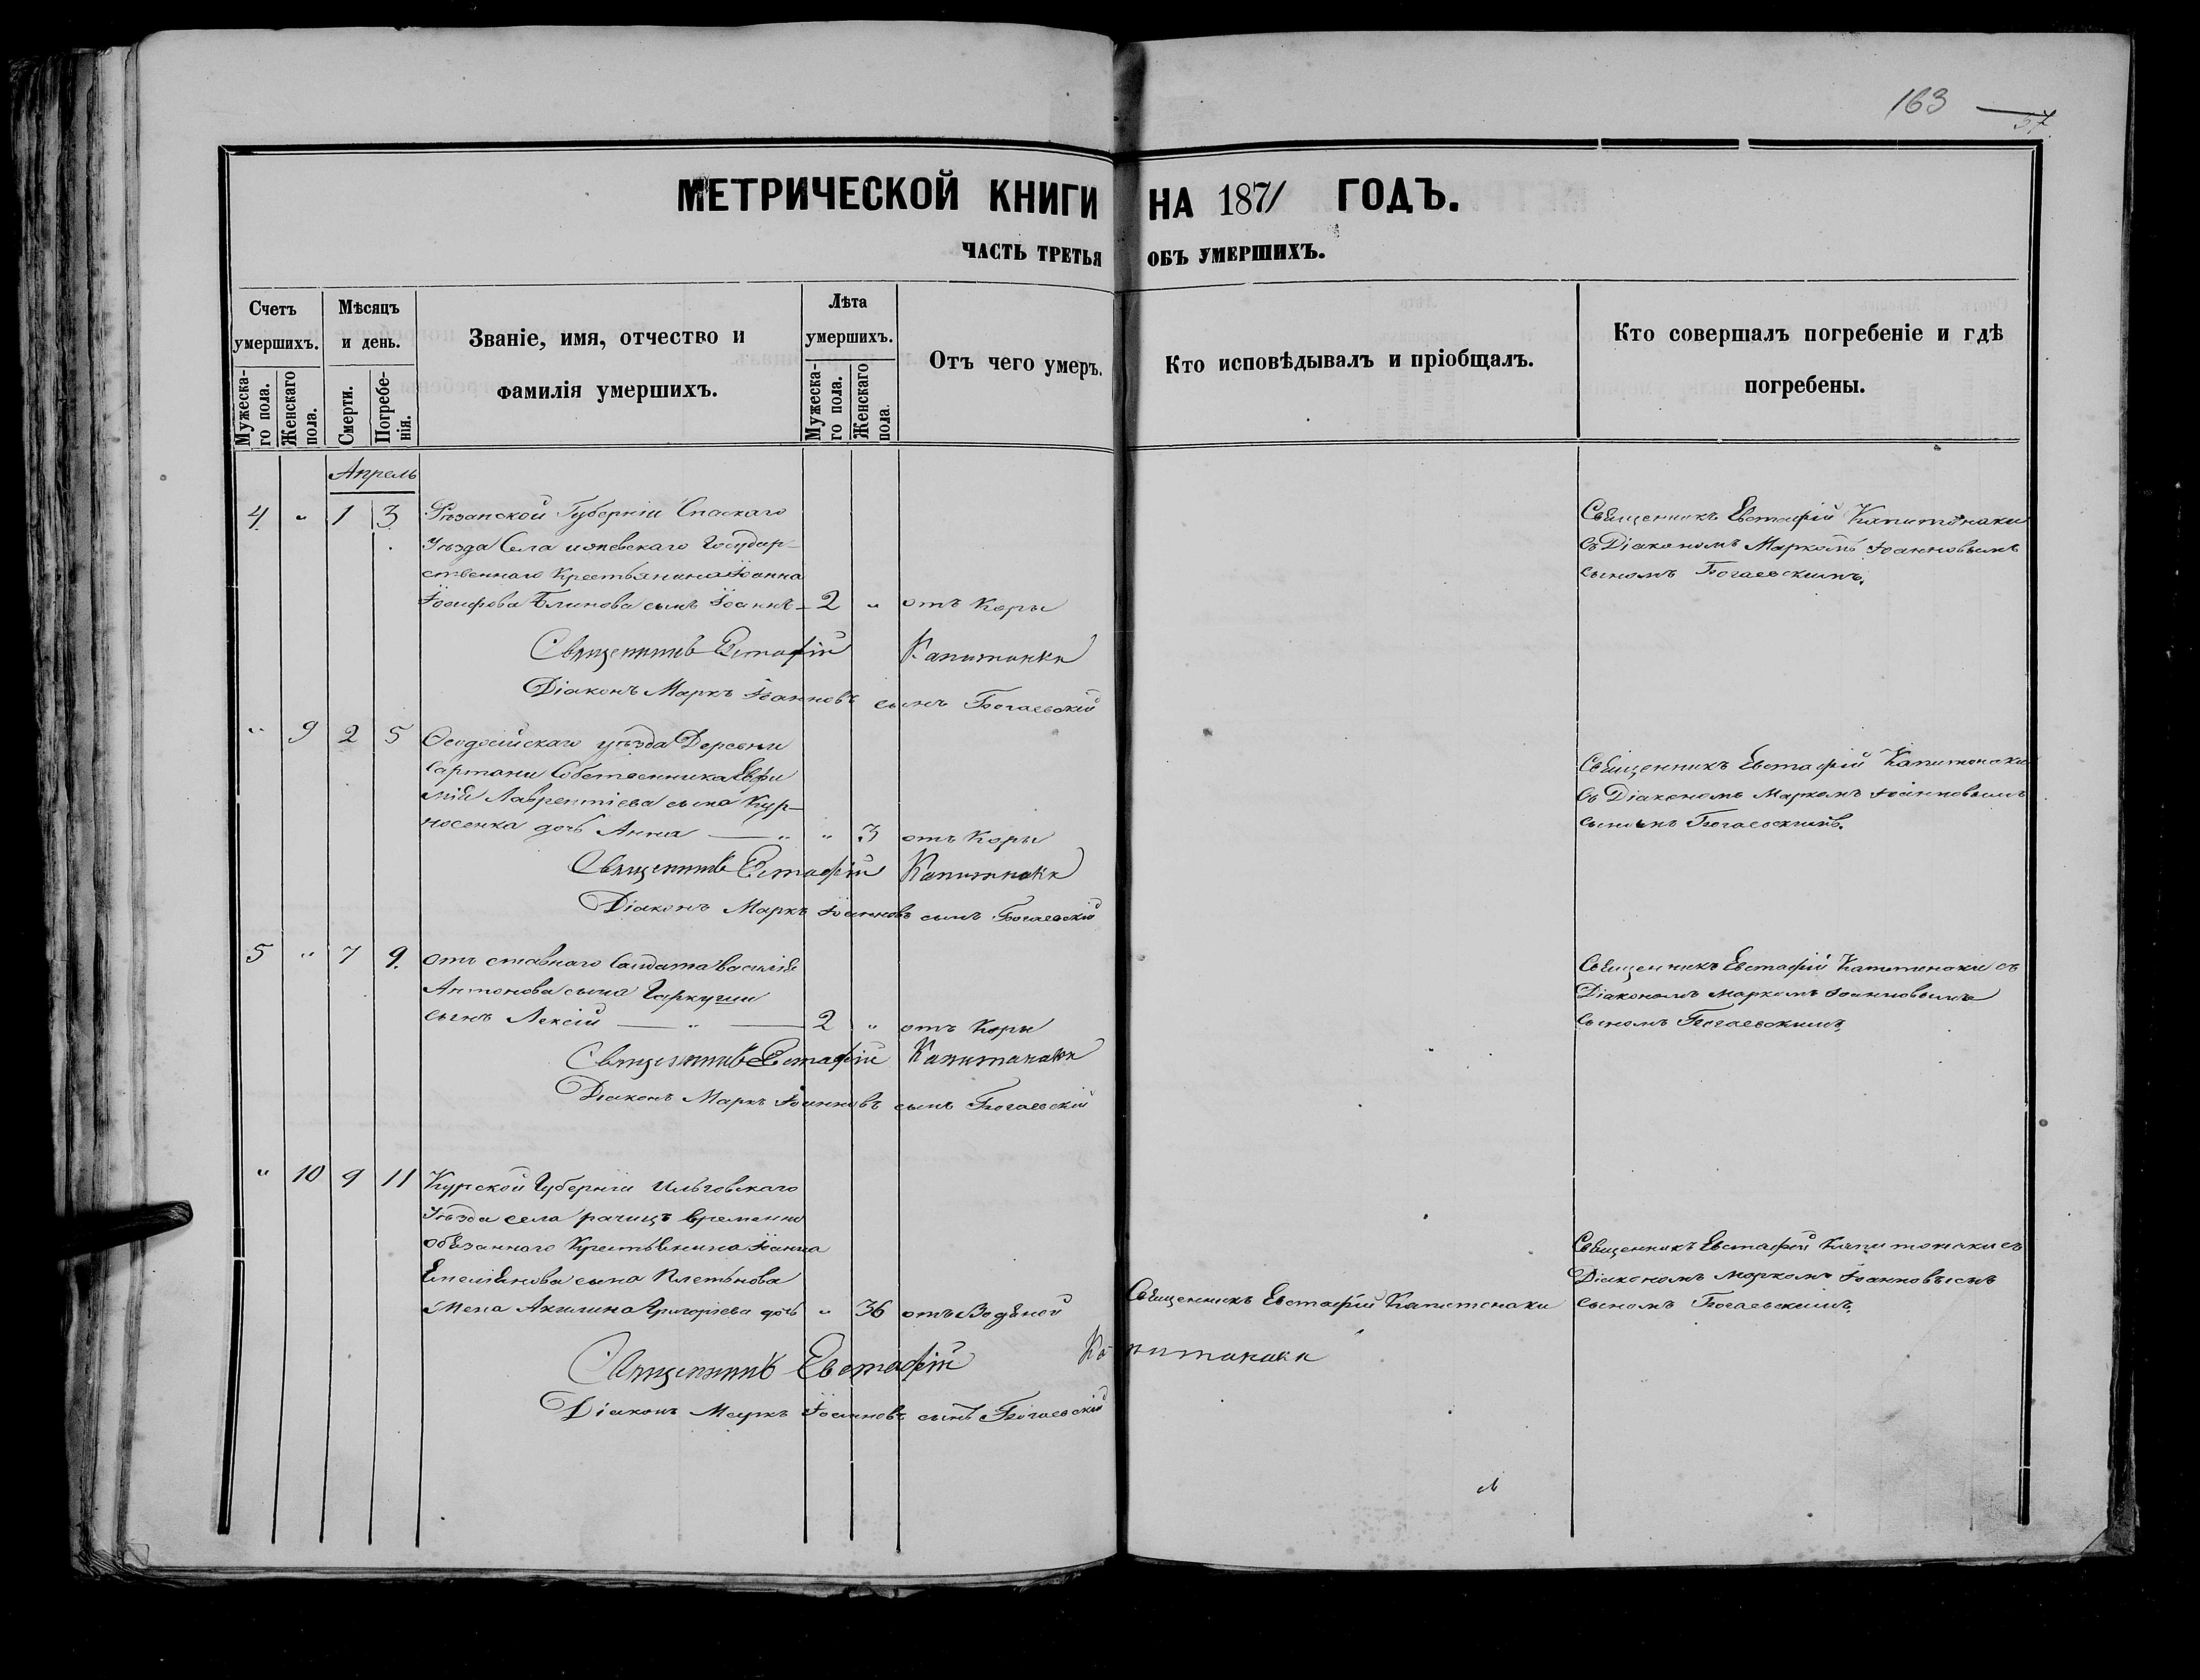 163
57
МЕТРИЧЕСКОЙ КНИГИ НА 1871 ГОДЪ.
ЧАСТЬ ТРЕТЬЯ ОБЪ УМЕРШИХЪ.
Счетъ умершихъ.
Мужескаго пола.
Женскаго пола.
Мѣсяцъ и день.
Смерти.
Погребенія.
Званіе, имя, отчество и фамилія умершихъ.
Лѣта умершихъ.
Мужескаго пола.
Женскаго пола.
Отъ чего умеръ.
Кто исповѣдывалъ и пріобщалъ.
Кто совершалъ погребеніе и гдѣ погребены.
Апрель
4 " 1 3 Рязанской Губерніи Спаскаго
Уѣзда Села ижевскаго Государ-
ственнаго Крестьянина Іоанна
Іосифова Блинова сынъ Іоаннъ - 2 " отъ Кори
Священникъ Евстафій Капитонаки
съ Діакономъ Маркомъ Іоанновымъ
сыномъ Богаевскимъ.
Священникъ Евстафій Капитонаки
Діаконъ Маркъ Іоанновъ сынъ Богаевскій
" 9 2 5 Ѳеодосійскаго уѣзда Деревни
Сартаны Собственника Евфи
мій Лаврентіева сына Кур-
носенка дочь Анна — " " 3 отъ Кори
Священникъ Евстафій Капитонаки
съ Діакономъ Маркомъ Іоанновымъ
сыномъ Богаевскимъ.
Священникъ Евстафій Капитонаки
Діаконъ Маркъ Іоанновъ сынъ Богаевскій
5 " 7 9. отъ ставнаго Салдата василія
Антонова сына Гаркуши
сынъ Лексій — " — 2 " отъ Кори
Священникъ Евстафій Капитонаки съ
Діакономъ Маркомъ Іоанновымъ
сыномъ Богаевскимъ.
Священникъ Евстафій Капитонаки
Діаконъ Маркъ Іоанновъ сынъ Богаевскій
" 10 9 11 Курской Губерніи Ильговскаго
Уѣзда села рачицъ временно
обязаннаго Крестьянина Іоанна
Емелянова сына Плетьнова
Жена Акилина Григоріева дочь " 36 отъ Водяной
Священникъ Евстафій Капитонаки
Священникъ Евстафій Капитонаки съ
Діакономъ Маркомъ Іоанновымъ
сыномъ Богаевскимъ.
Священникъ Евстафій Капитонаки
Діаконъ Маркъ Іоанновъ сынъ Богаевскій